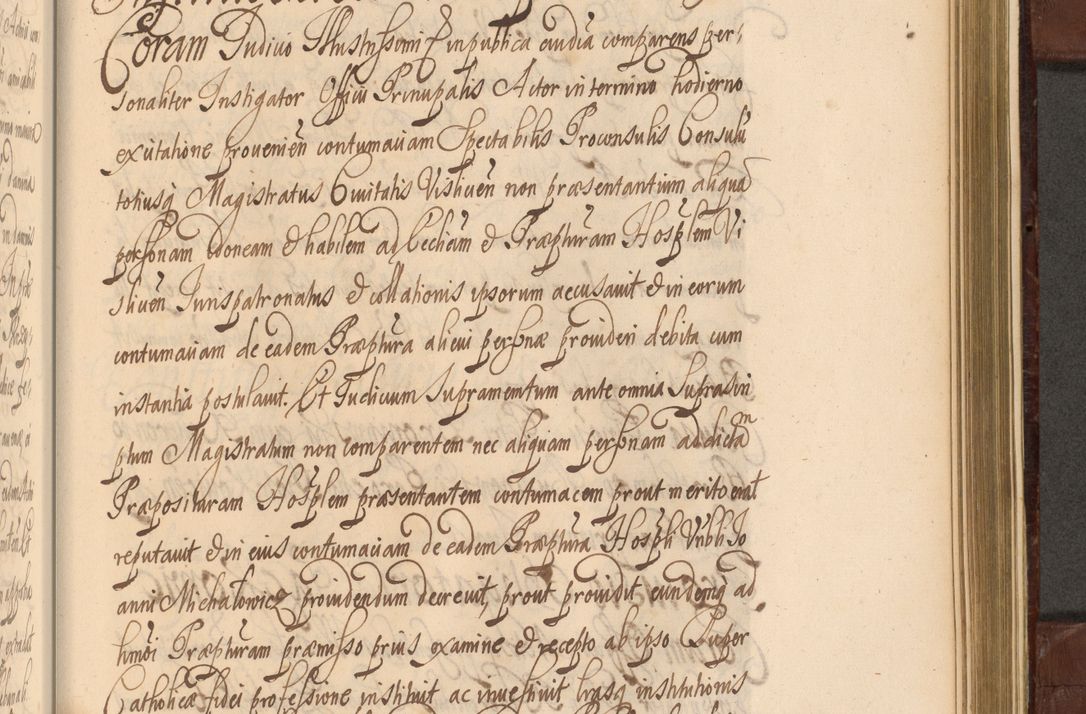 Coram Judicio Illustrissimi & in publica audia comparens per,
sonaliter Instigator Officii Principalis Actor in termino hodierno
ex citatione provenien̄ contumaciam Spectabilis Proconsulis Consulū
totiusq̃ Magistratus Civitatis Vislicen̄ non præsentantium aliquā
personam idoneam & habilem ad Ecclīam & Præpturam Hosplem Vi
slicen̄ Jurispatronatus & collationis ipsorum accusavit & in eorum
contumaciam de eadem Præptura alicui personæ provideri debita cum
instantia postulavit. Et Judicium Supramentum ante omnia Suprascri
ptum Magistratum non comparentem nec aliquam personam ad dictam
Præposituram Hosplem præsentantem contumacem prout merito erat
reputavit & in eius contumaciam de eadem Præptura Hospli Vnbli Jo
anni Michałowicz providendum decrevit, prout providit eundemq̃ ad
hmōi Præpturam præmisso prius examine & recepto ab ipso Super
Catholicæ fidei professione instituit ac investivit lrasq̃ institutionis